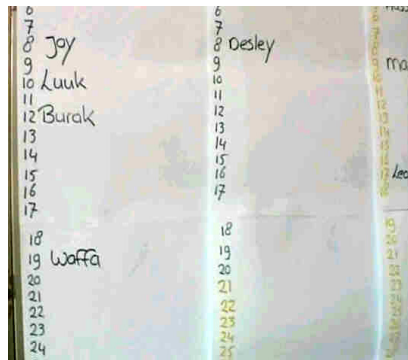 6
7
8 Joy
9
10 Luuk
11
12 Burak
13
14
15
16
17
18
19 Waffa
20
21
22
23
24
6
7
8 Desley
9
10
11
12
13
14
15
16
17
18
19
20
21
22
23
24
25
17
18
19
20
21
22
23
24
25